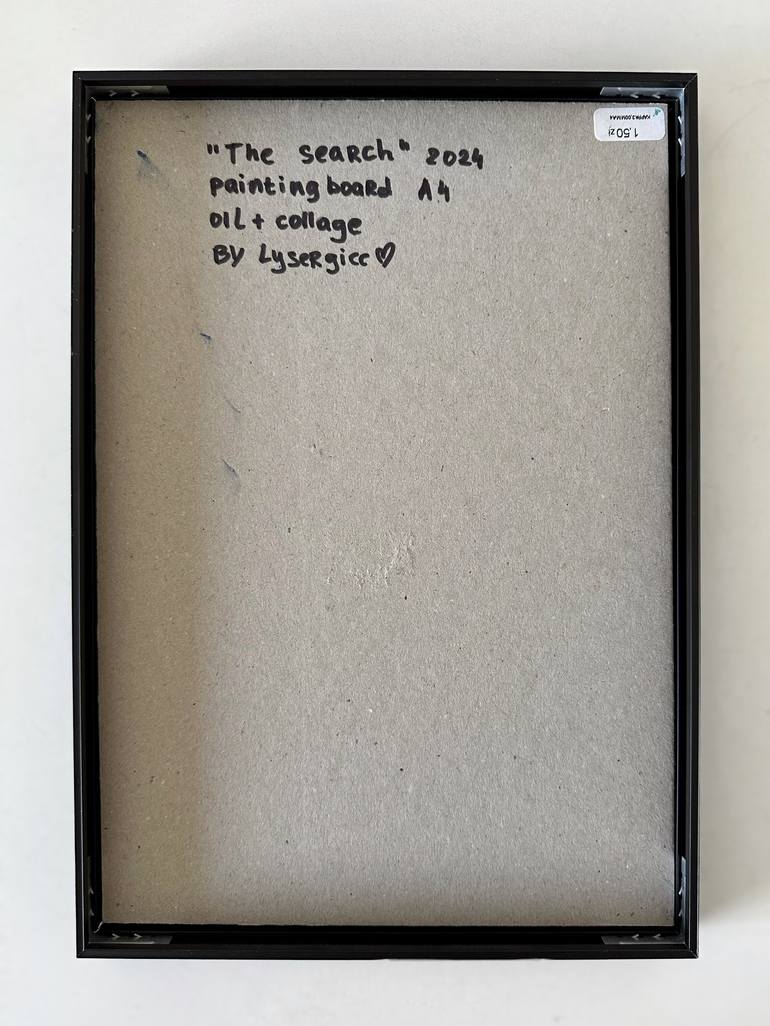 "The search" 2024
painting board A4
oil + collage
BY Lysergicc ♡
1,50zł
KAPPA3,00MMA4